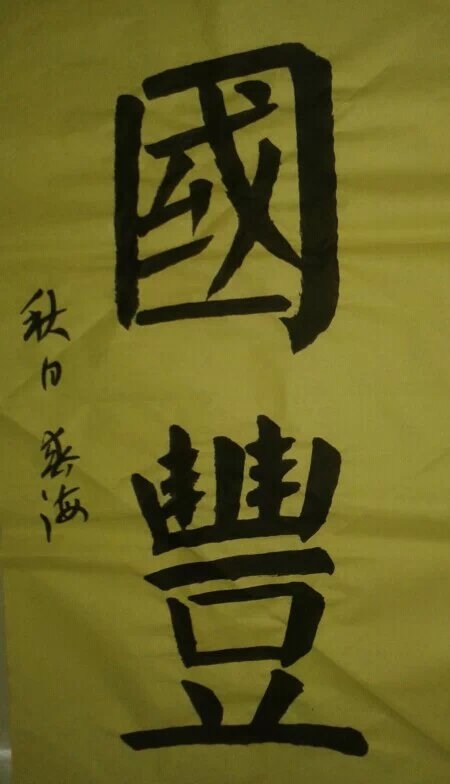 國豐
秋日
海